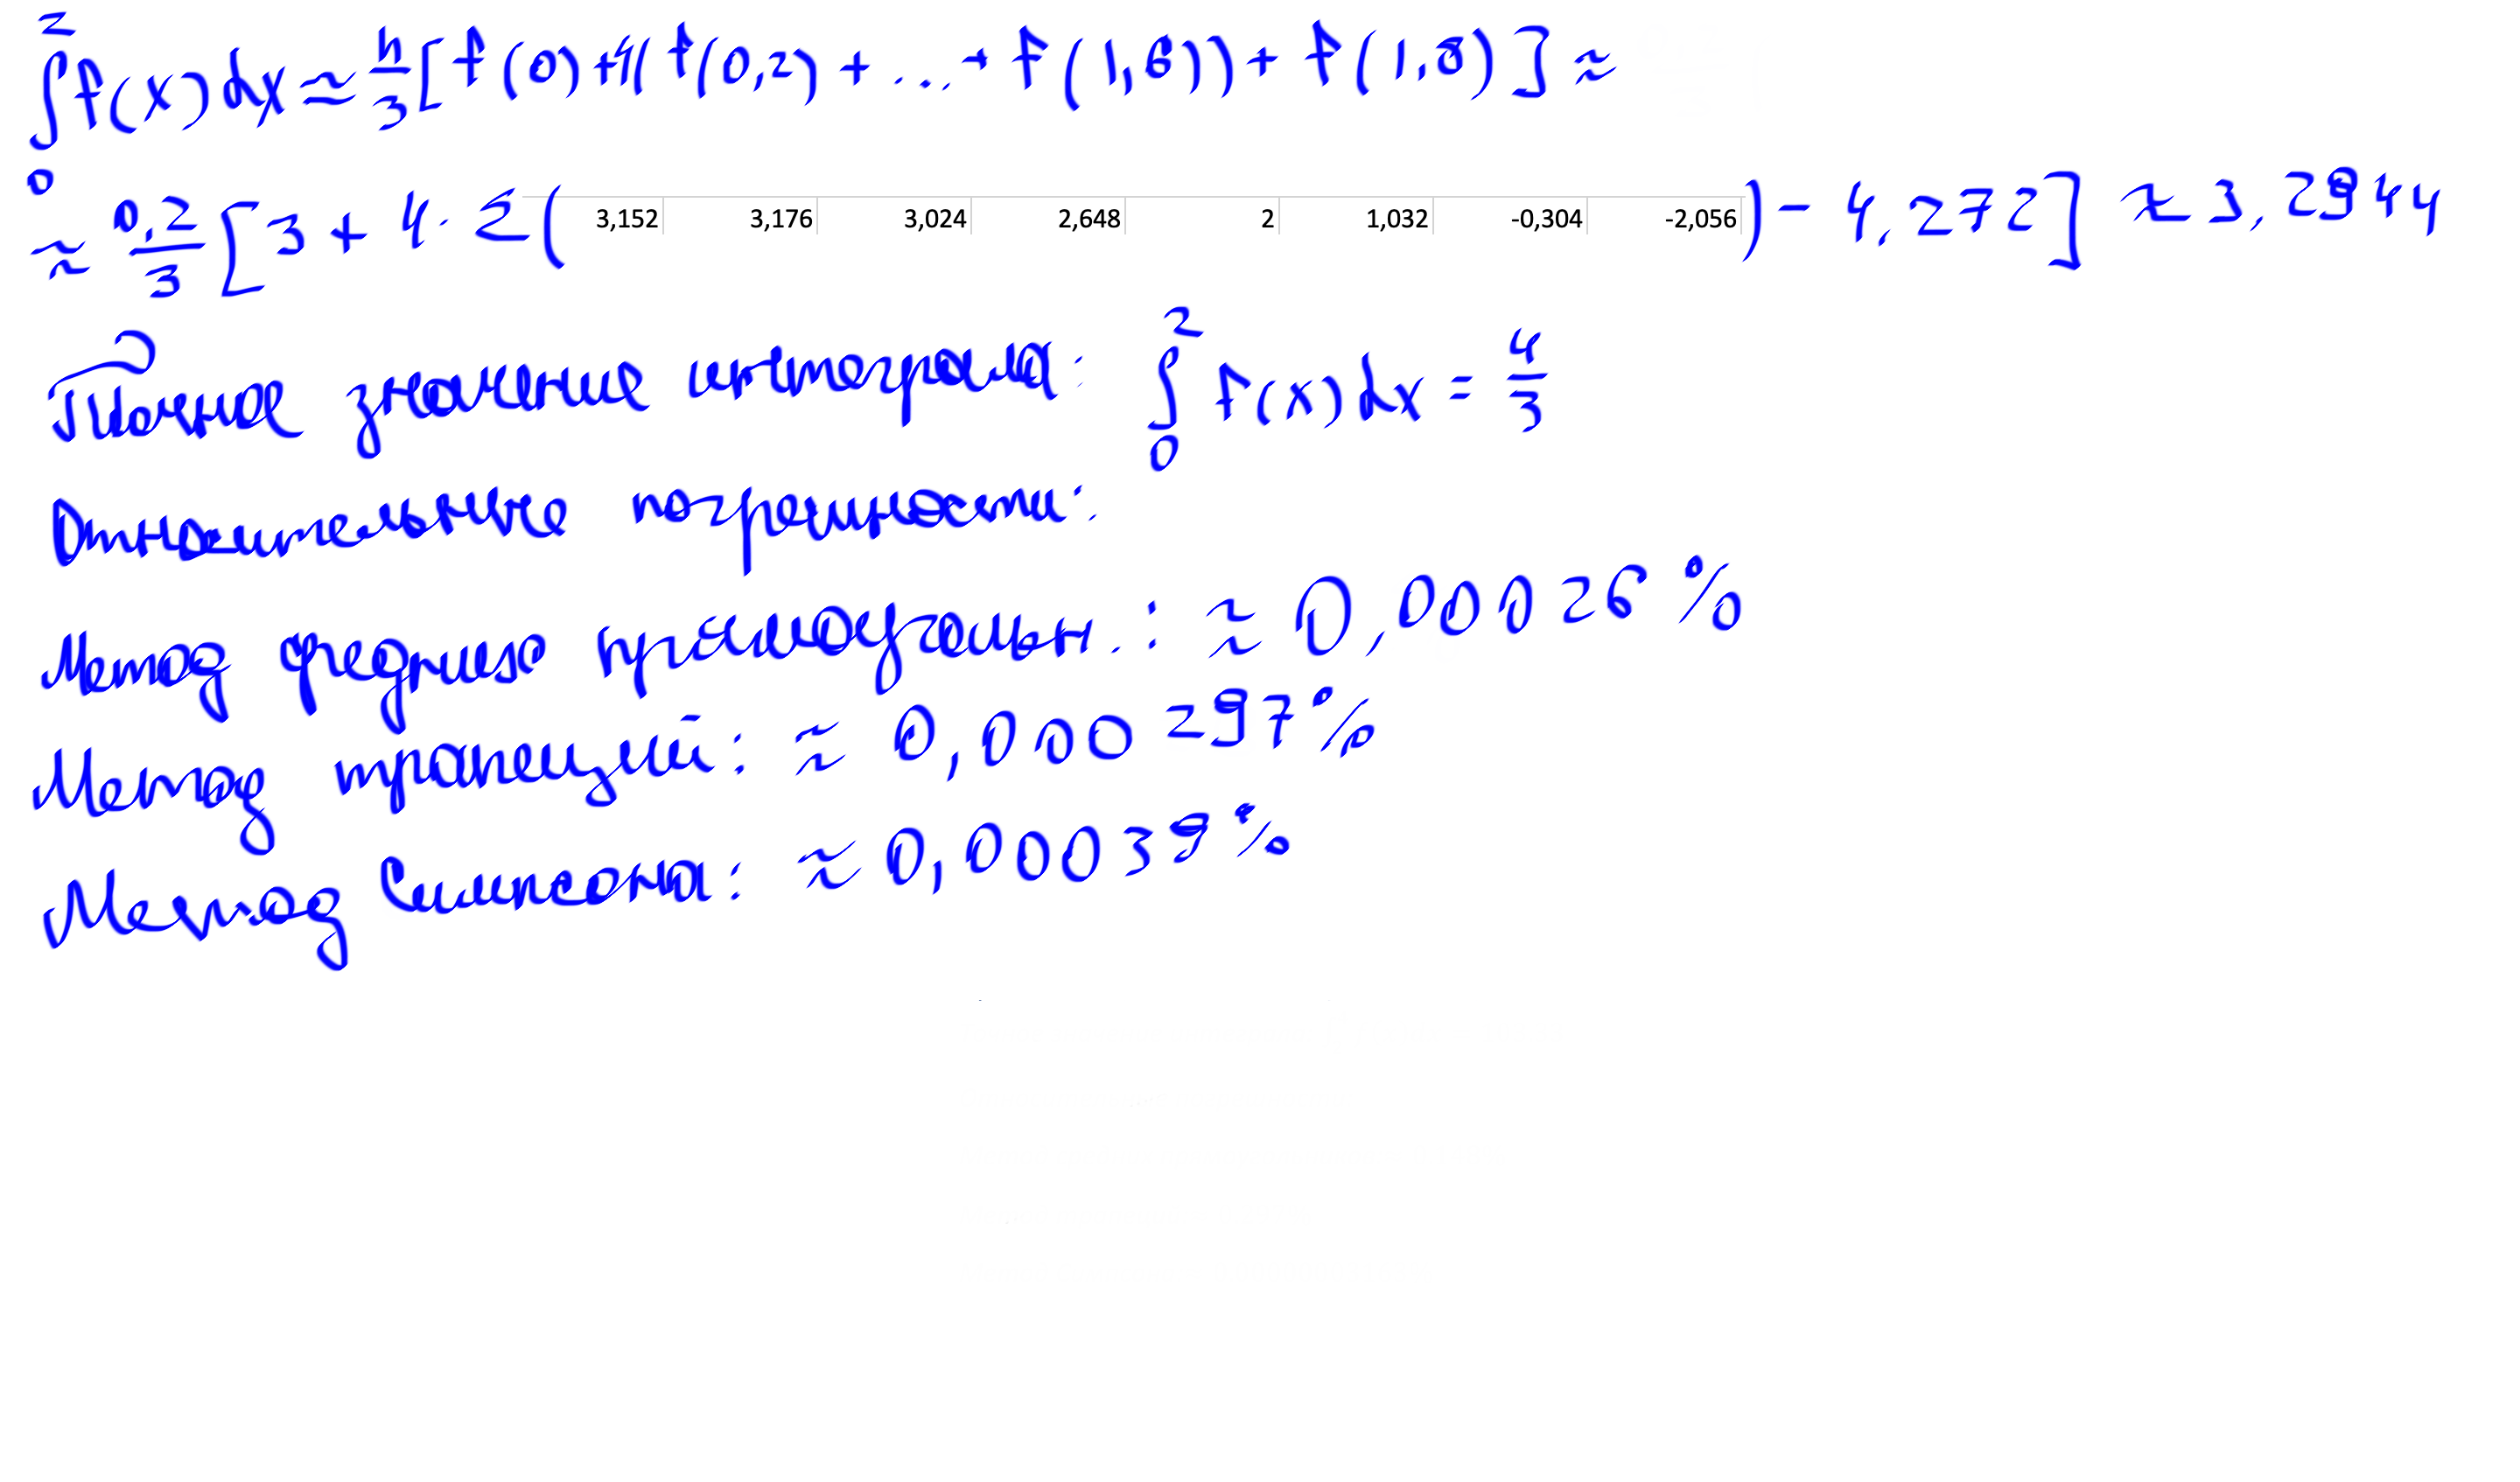 ∫₀² f(x)dx ≈ h/3 [f(0)+4(f(0,2)+...+f(1,6))+f(1,8)] ≈
≈ 0,2/3 [3+4·Σ(3,152 3,176 3,024 2,648 2 1,032 -0,304 -2,056)-4,272] ≈ 3,2944
Точное значение интеграла: ∫₀² f(x)dx = 4/3
Относительные погрешности:
Метод среднего прямоугольн.: ≈ 0,00026%
Метод трапеций: ≈ 0,000297%
Метод Симпсона: ≈ 0,00039%